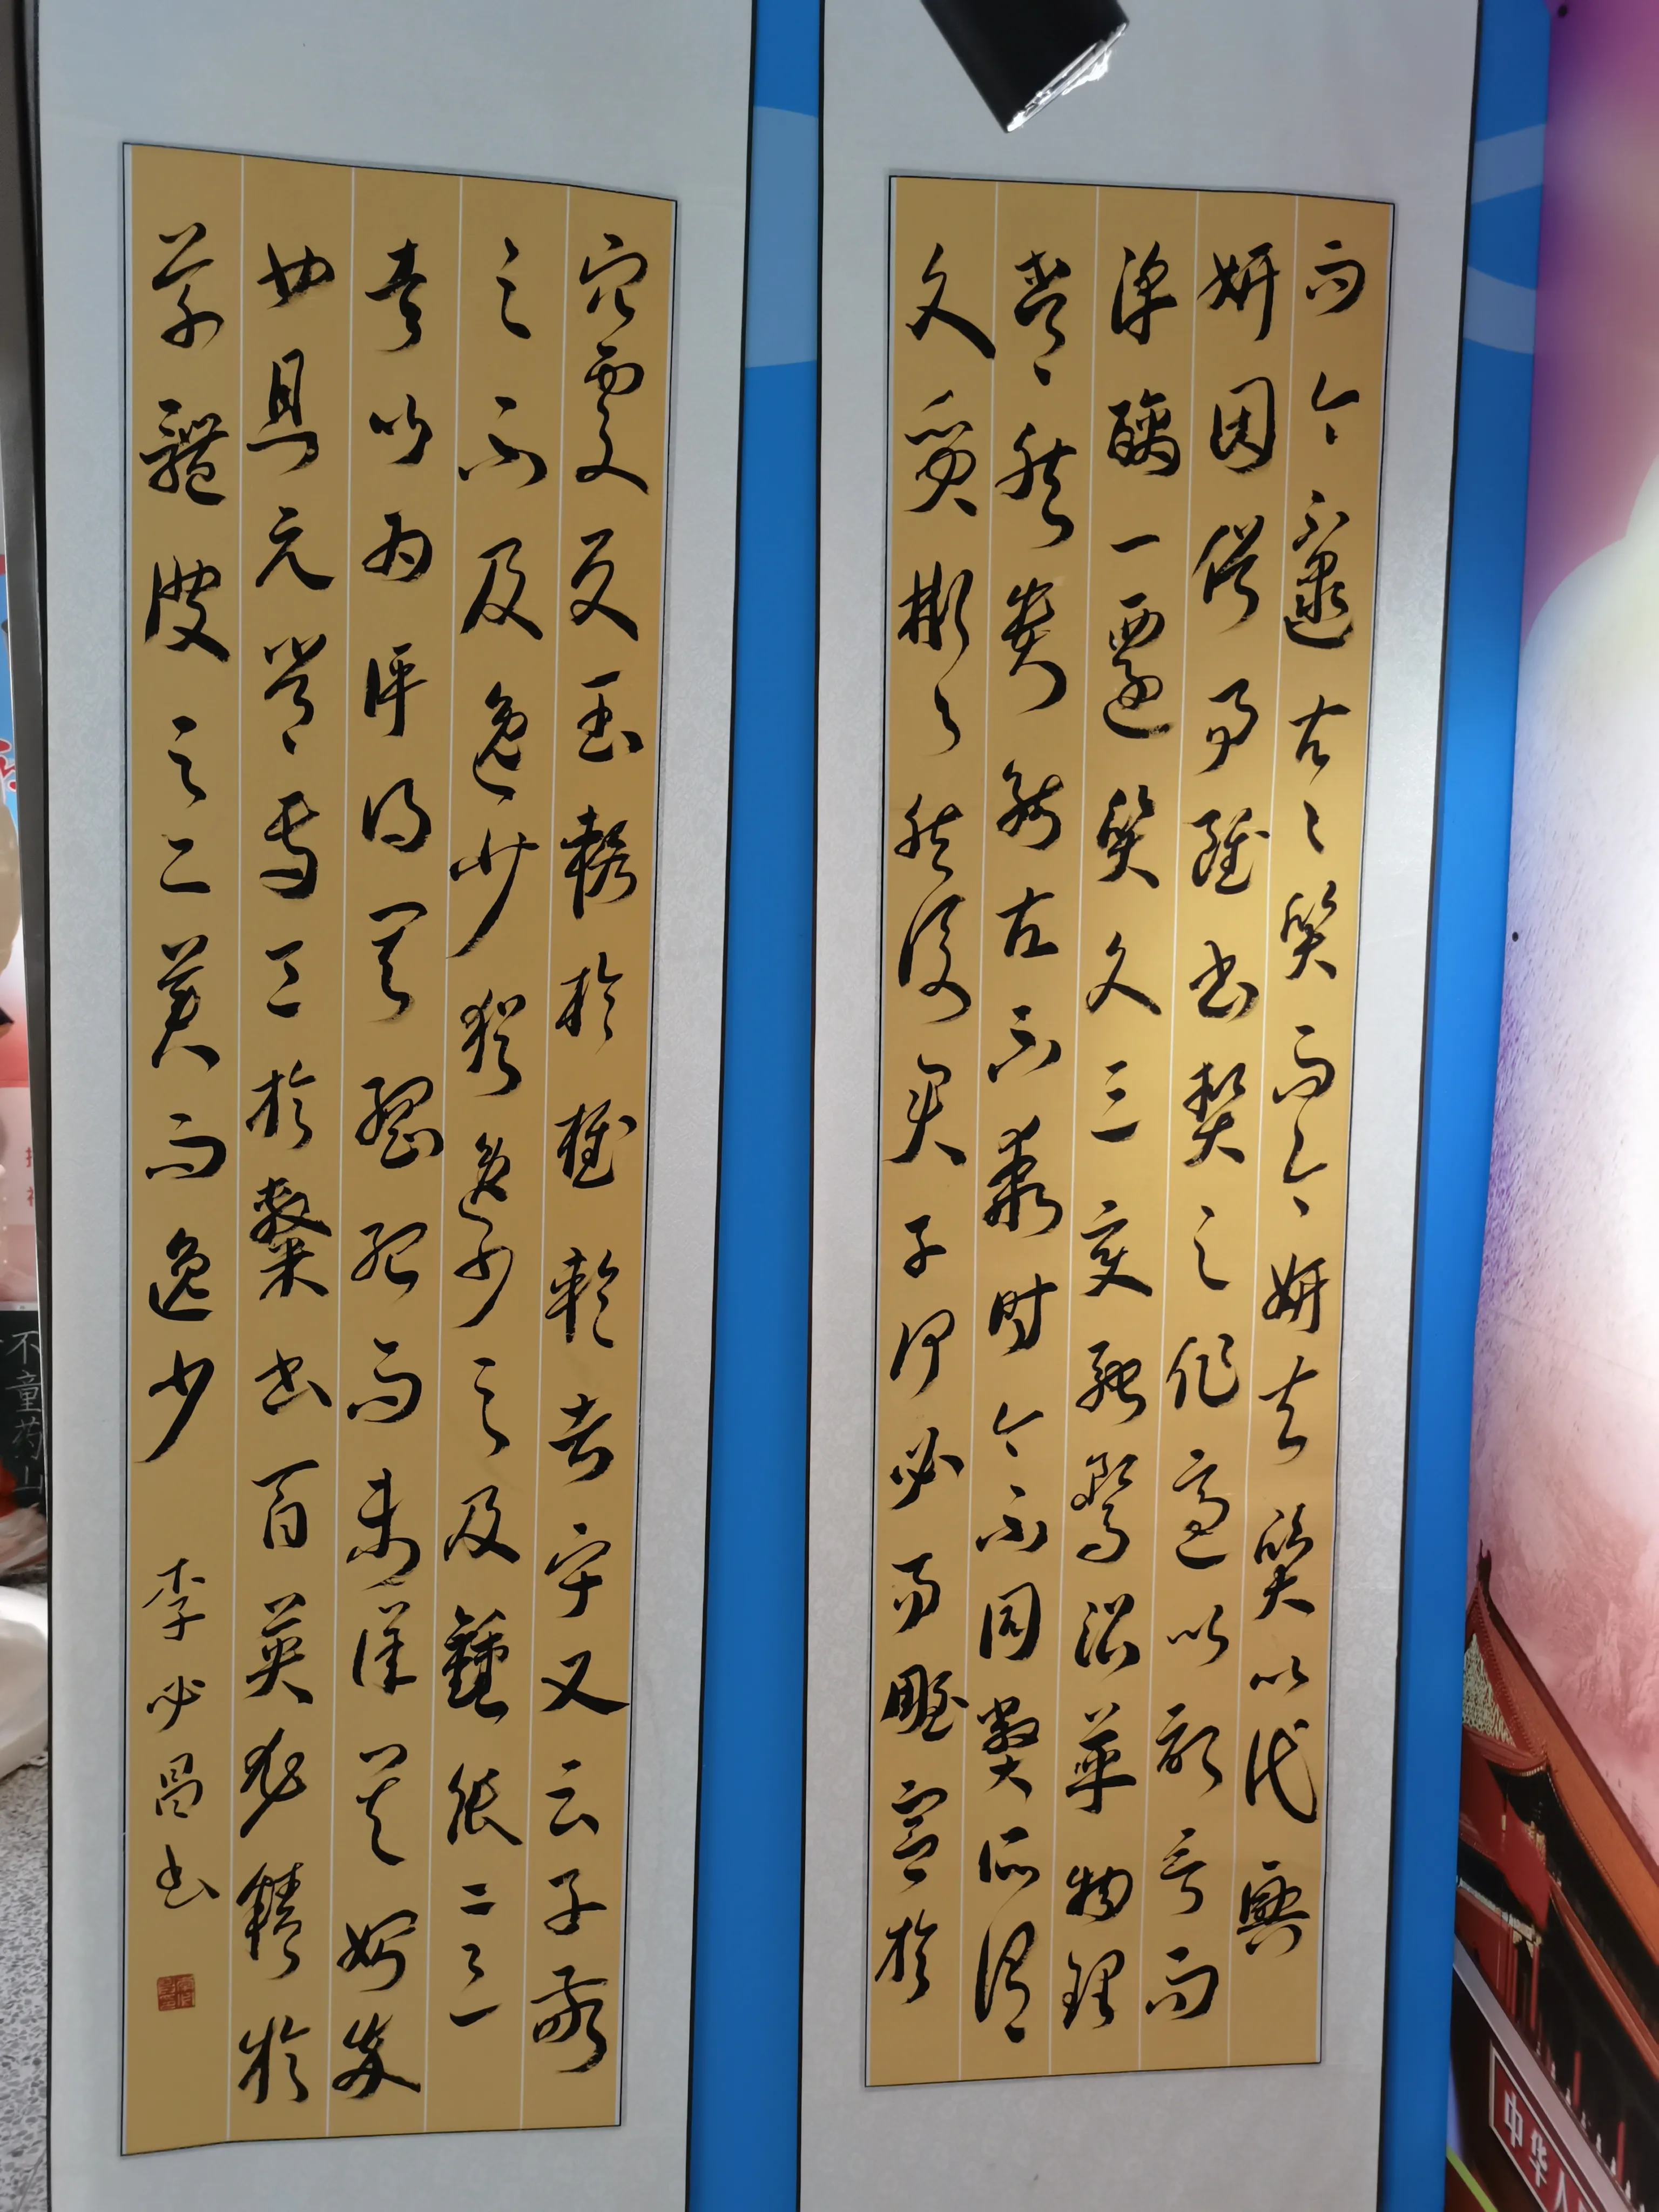 而今不逮古〻質而今妍夫質以代興
妍因俗易雖書契之作適以記言而
淳醨一遷質文三變馳騖沿革物理
常然貴能古不乖時今不同弊所謂
文質彬〻然後君子何必易雕宮於
穴處反玉輅於椎輪者乎又云子敬
之不及逸少猶逸少之及鍾張
意以為評得其綱紀而未詳其始卒
也且元常專工於隸書百英尤精於
草體彼之二美而逸少
李必昌書
中华人